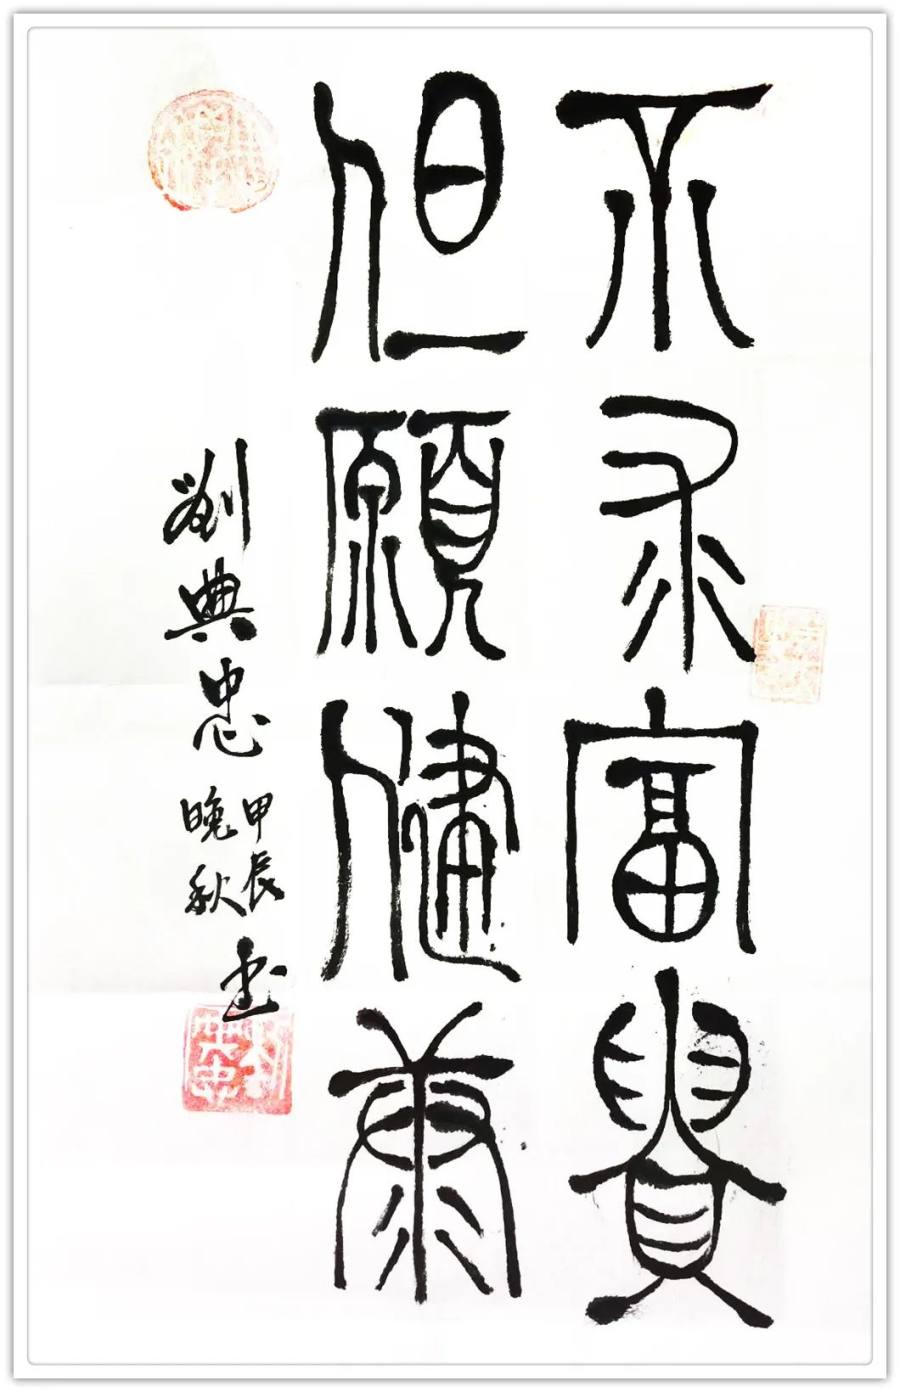 不求富貴
但願健康
劉典忠
甲辰
晚秋
書